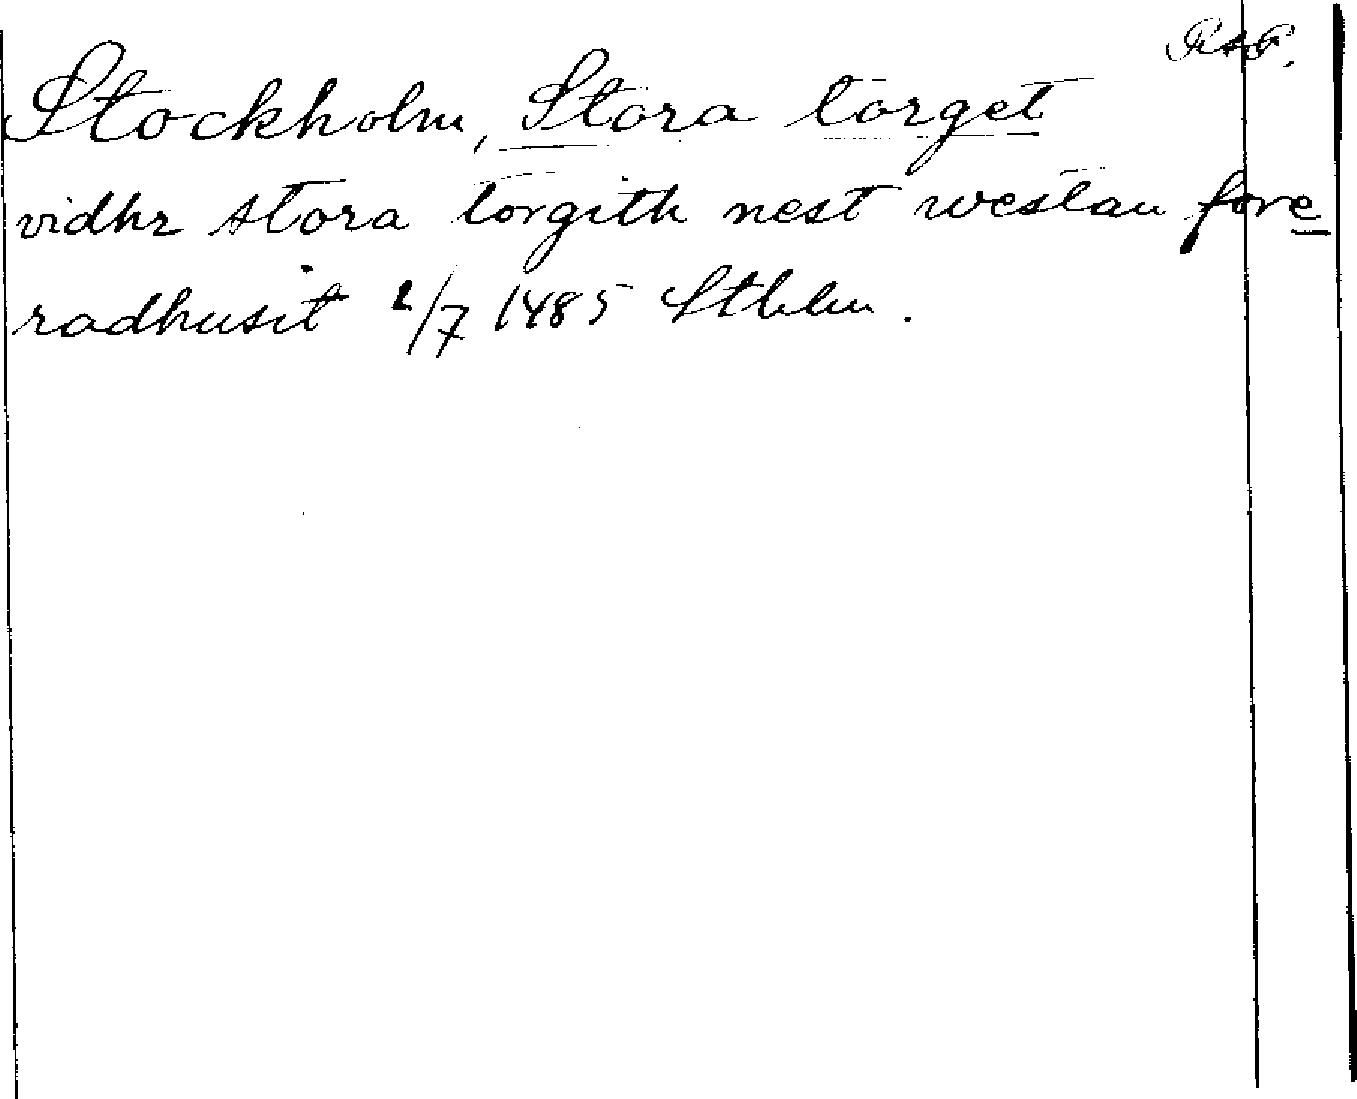 RAP.
Stockholm, Stora torget
vidhr stora torgith nest westan fore
radhusit 2/7 1485 Sthlm.